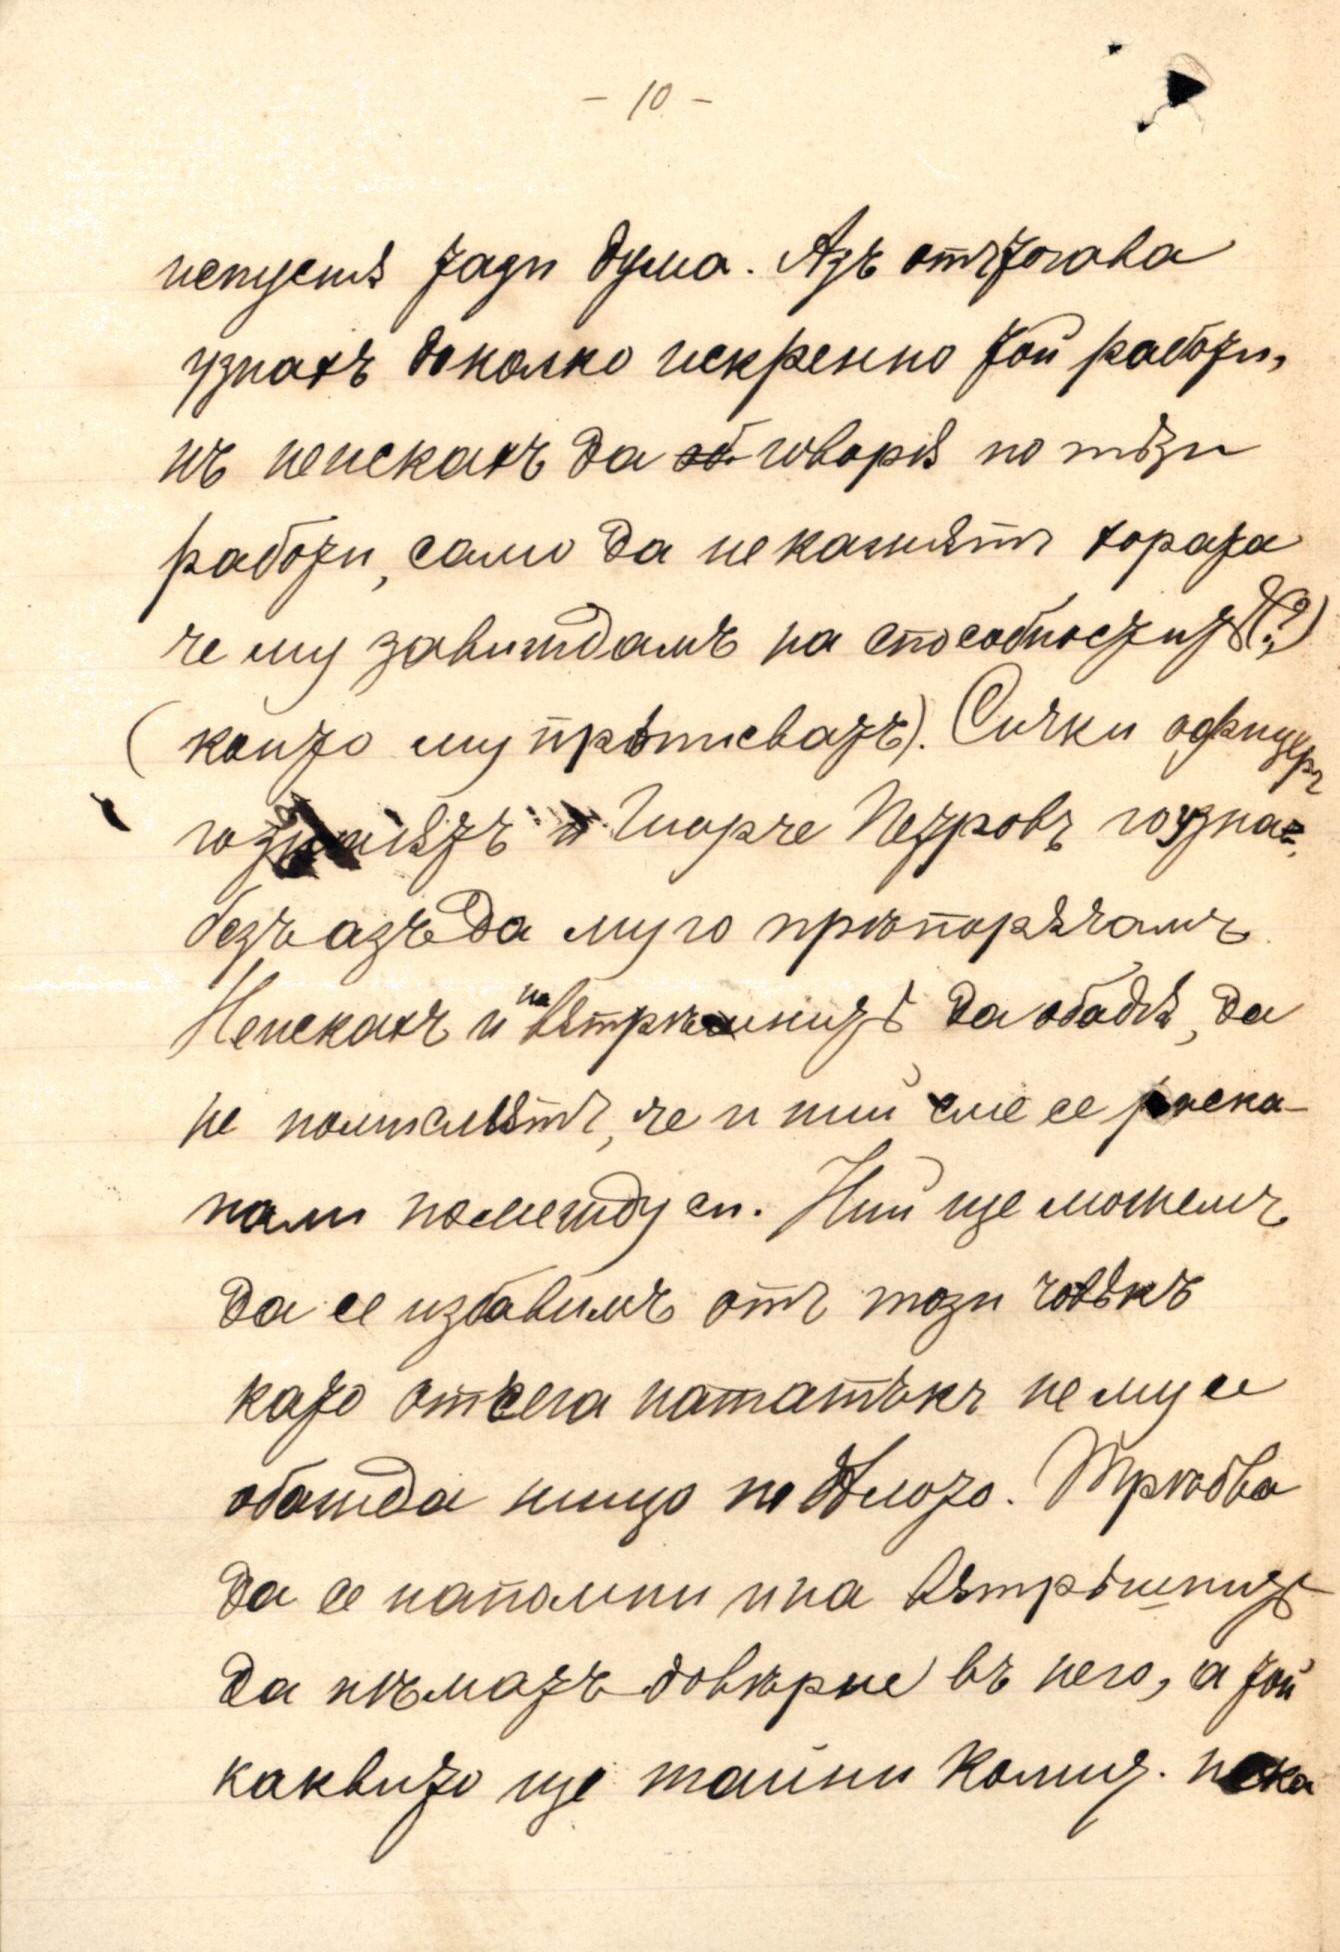 - 10 -
непустѣ тази дума. Азъ отътогава
узнахъ доколко искренно той работи,
нъ неисках​ъ да говорѣ по тѣзи
работи, само да не кажѫтъ хората
че му завиждамъ на способноститѣ (?)
(които му прѣписватъ). Сички офицери
го знаѭтъ и Гьорче Петровъ го узна,
безъ азъ да му го прѣпорѫчамъ.
Неискахъ и на вѫтрѣшнитѣ да обадѭ, да
не помислѭтъ, че и ний сме се
помежду си. Ний ще можемъ
да се избавимъ отъ този човѣкъ
като отсега нататъкъ не му се
обажда нищо по дѣлото. Трѣбва
да се напомни и на вѫтрѣшнитѣ
да нѣматъ довѣрие въ него, а той
каквито ще тайни Комит. нека